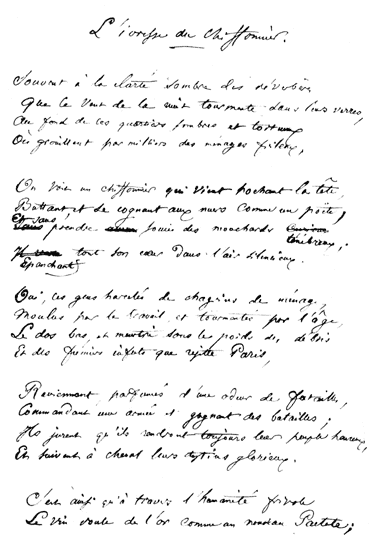 L'ivresse du Chiffonnier.
Souvent à la clarté sombre des réverbères
Que le vent de la nuit tourmente dans leurs verres,
Au fond de ces quartiers sombres et tortueux
Où grouillent par milliers des ménages frileux,
On voit un chiffonnier qui vient hochant la tête,
Buttant et se cognant aux murs comme un poète,
Et sans prendre souci des mouchards ténébreux;
Épanchant tout son cœur dans l'air silencieux.
Oui, ces gens harcelés de chagrins de ménage,
Moulus par le travail et tourmentés par l'âge,
Le dos bas, et meurtri sous le poids des débris
Et des fumiers infects que rejette Paris
Reviennent, parfumés d'une odeur de futailles,
Commandant une armée et gagnant des batailles;
Ils jurent qu'ils rendront toujours leur peuple heureux,
Et suivent à cheval leurs destins glorieux.
C'est ainsi qu'à travers l'humanité frivole
Le vin roule de l'or comme un nouveau Pactole;